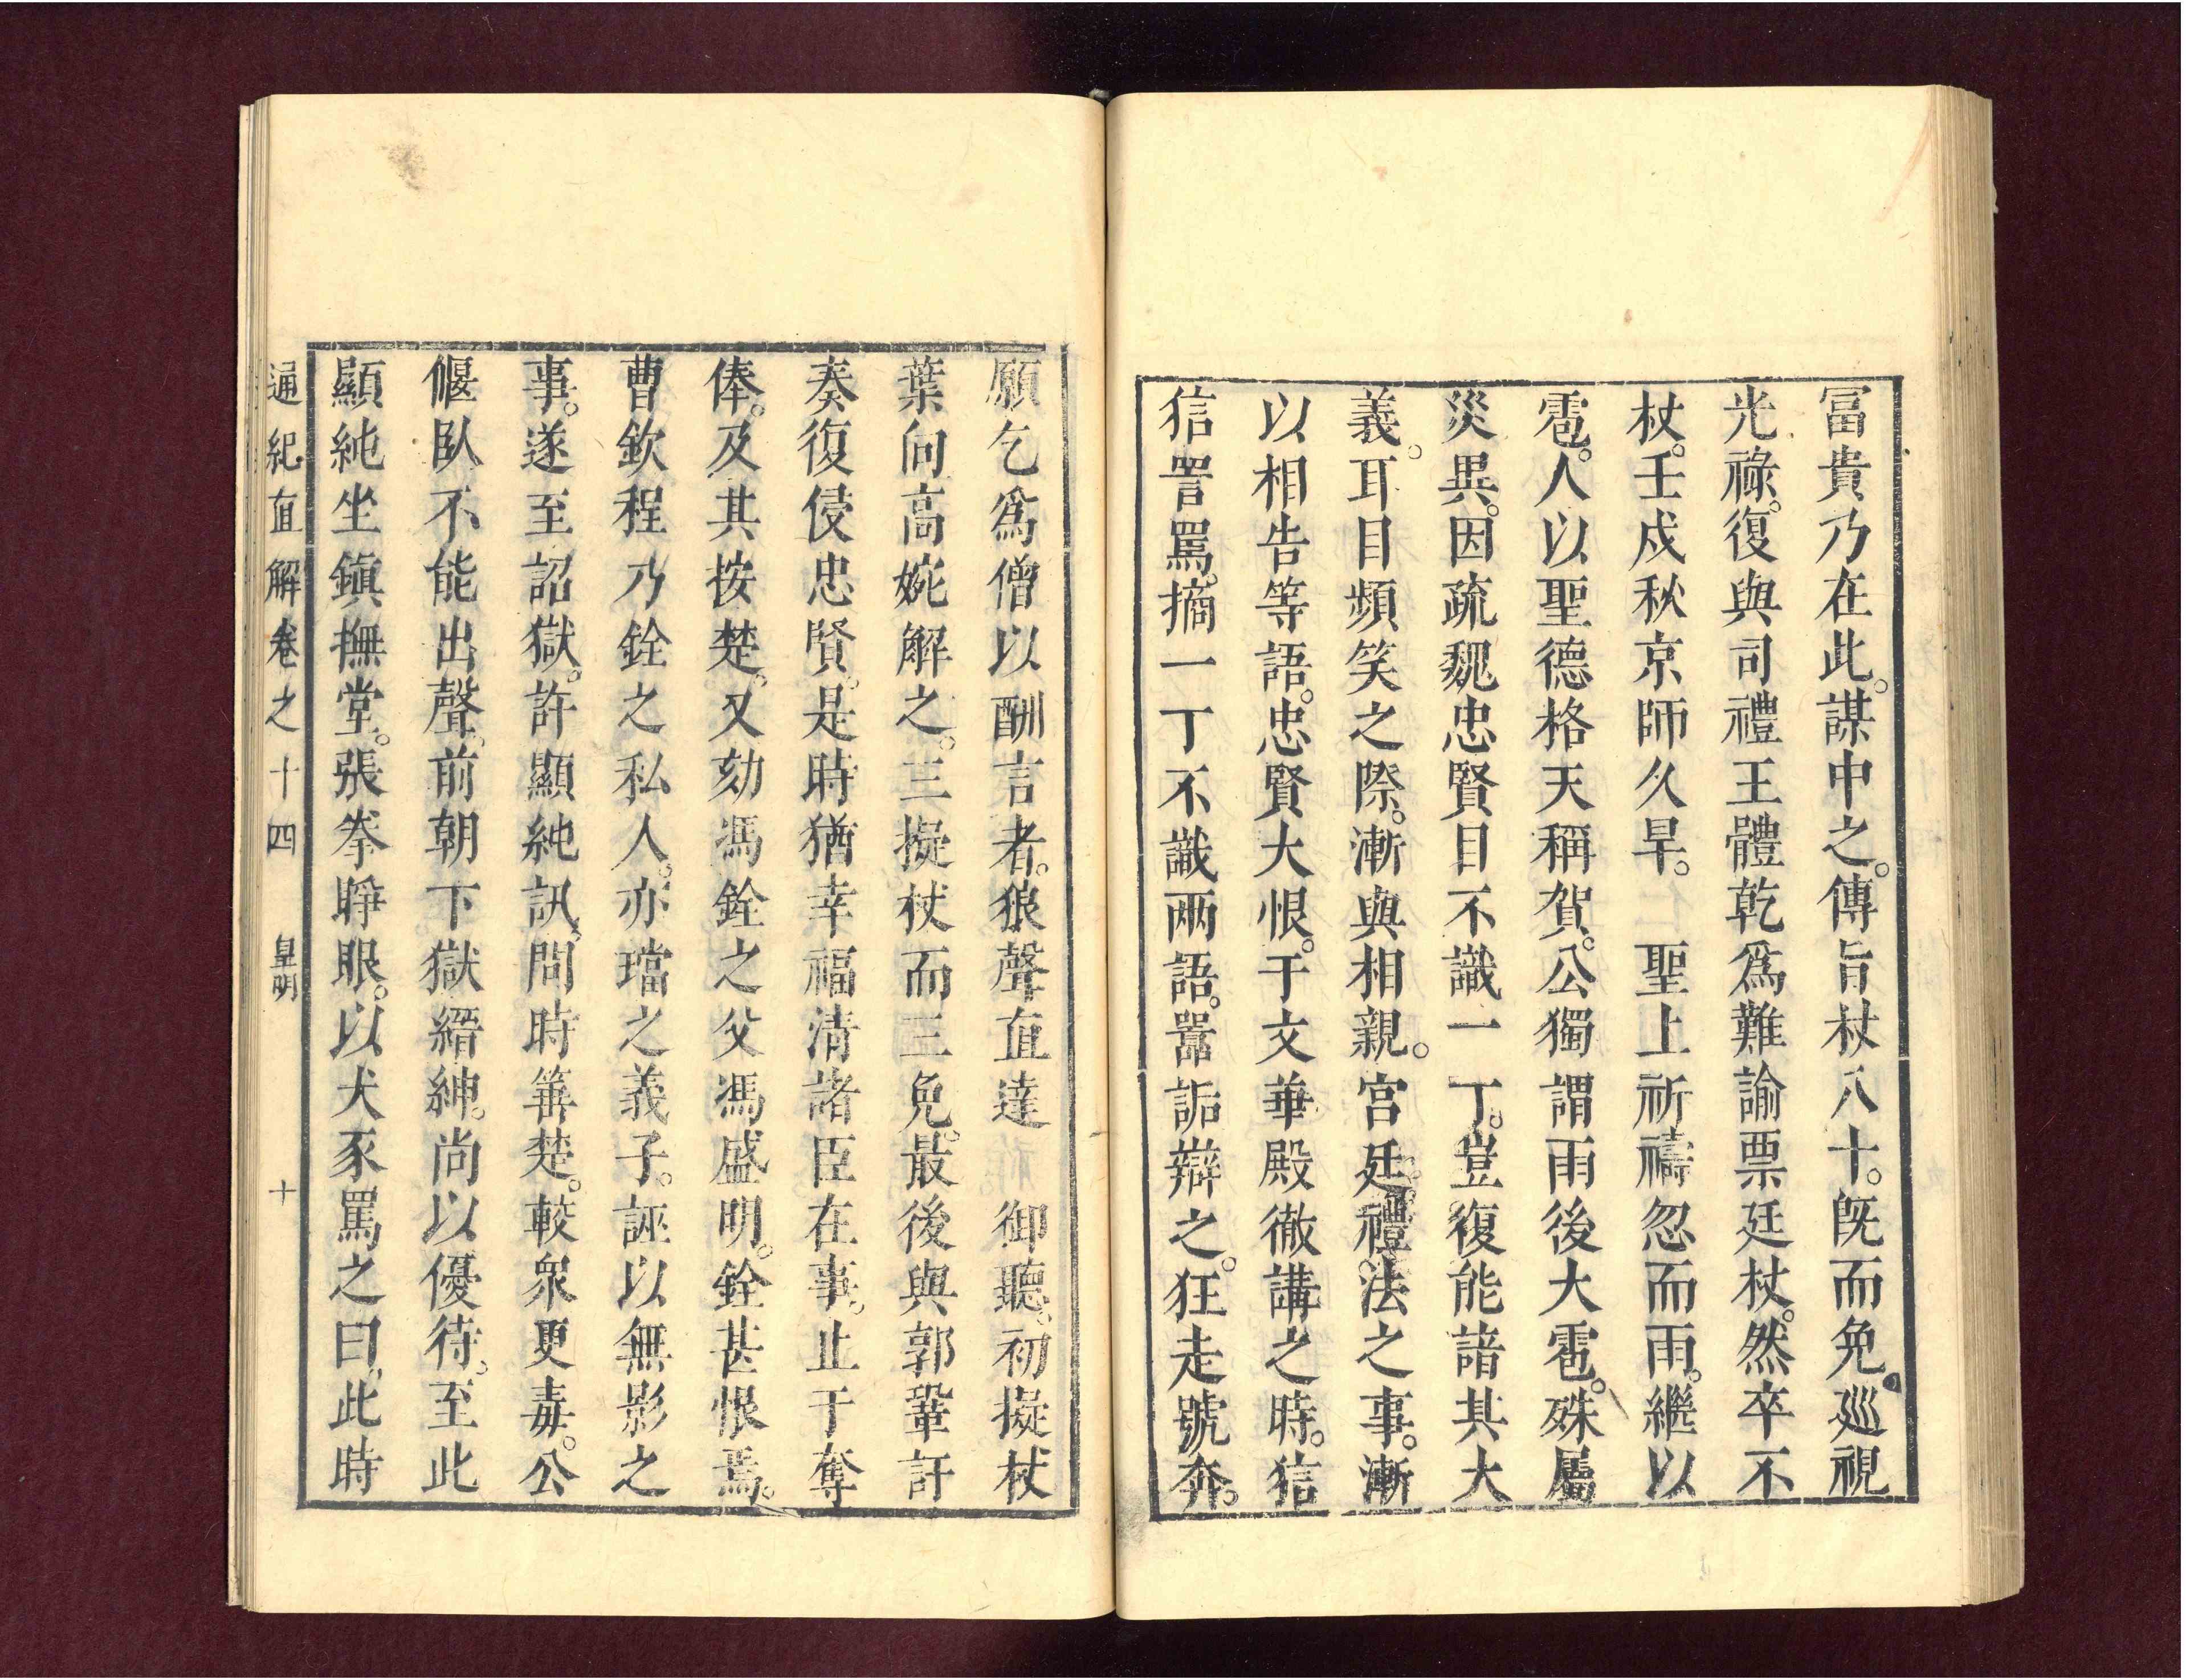 冨貴乃在此。謀中之。傳旨杖八十。旣而免廵視
光祿。復與司禮王體乾爲難諭票廷杖。然卒不
杖。壬戍秋京師久旱。聖上祈禱忽而雨。繼以
雹。人以聖德格天稱賀。公獨謂雨後大雹。殊屬
災異。因疏魏忠賢目不識一丁。豈復能諳其大
義。耳目頻笑之際。漸與相親。宮廷禮法之事。漸
以相告等語。忠賢大恨。于文華殿徹講之時。狺
狺詈罵。摘一丁不識两語。嚣詬辯之。狂走號奔。
願乞爲僧以酬言者。狼聲直達御聽。初擬杖
葉向高婉解之。三擬杖而三免。最後與郭鞏訐
奏復侵忠賢。是時猶幸福清諸臣在事。止于奪
俸。及其按楚。又劾馮銓之父馮盛明。銓甚恨焉。
曹欽程乃銓之私人。亦璫之義子。誣以無影之
事。遂至詔獄。許顯純訊問時箠楚。較衆更毒。公
偃臥不能出聲。前朝下獄縉紳。尚以優待。至此
顯純坐鎭撫堂。張拳睜眼。以犬豕罵之曰。此時
通紀直解卷之十四 皇明 十